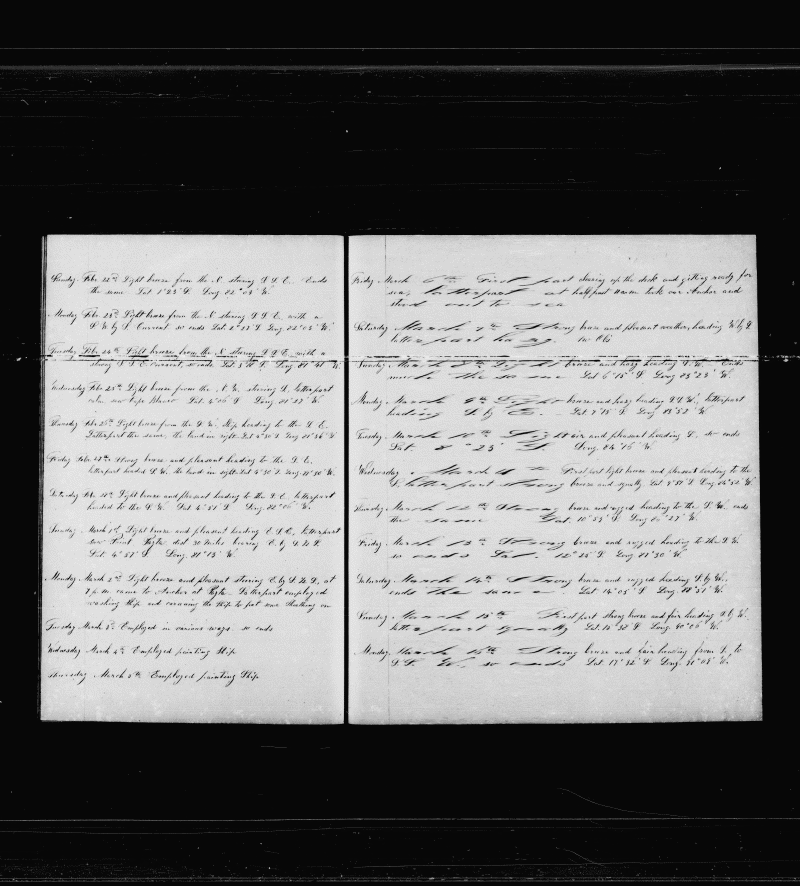 Sunday Feb. 22nd Light breeze from the N. stearing S.S.E. Ends
the same Lat 1°23' S. Long 82°04' W.
Monday Feb. 23rd Light breeze from the N. stearing S.S.E. with a
S.W. by S. Current so ends Lat 2° S Long W.
Tuesday Feb. 24th Light breeze from the N. stearing S.S.E. with a
strong Current, so ends. Lat S. Long W.
Wednesday Feb. 25th Light breeze from the N.W. stearing S. latterpart
calm Lat 4°06' S Long 81°27' W.
Thursday Feb. 26th Light breeze from the S.W. Ship heading to the S.E.
Latterpart the same. the land in sight. Lat 4°30' S. Long W.
Friday Feb. 27th Strong breeze and pleasant heading to the S.E.
latterpart headed S.W. the land in sight. Lat 4°30' S. Long 81°30' W.
Saturday Feb. 28th Light breeze and pleasant heading to the S.E. latterpart
headed to the S.W. Lat 4°51' S Long W.
Sunday March 1st, Light breeze and pleasant heading E.S.E., latterpart
saw Point dist 30 Miles bearing E. by S.
Lat. 4°51' S Long. 81°13' W.
Monday March 2nd Light breeze and pleasant stearing E. by S. at
7 p.m. came to Anchor at Latterpart employed
washing Ship and the Ship to put some Sheathing on
Tuesday March 3rd Employed in various ways. so ends
Wednesday March 4th Employed painting Ship
Thursday March 5th Employed painting Ship
Friday March 6th First part clearing up the deck and getting ready for
sea, latterpart at half past took our Anchor and
stood out to sea
Saturday March 7th Strong breeze and pleasant weather, heading W. by S.
latterpart hazy. no Ob
Sunday March 8th Light breeze and hazy heading S.W. Ends
much the same Lat 6°15' S Long 83°23' W.
Monday March 9th Light breeze and hazy heading latterpart
heading S. by E. Lat 7°15' S. Long 83°53' W.
Tuesday March 10th Light air and pleasant heading S. so ends
Lat. 8°23' S Long. 84°16' W.
Wednesday March 11 First part light breeze and pleasant heading to the
S. latterpart strong breeze and squally Lat. S Long 84°52' W.
Thursday March 12th Strong breeze and rugged heading to the S.W. ends
the same Lat. 10°53' S Long W.
Friday March 13th Strong breeze and rugged heading to the S.W.
so ends Lat. 12°25' S Long 87°30' W.
Saturday March 14th Strong breeze and rugged heading S. by W.
ends the same. Lat 14°05' S. Long 88°51' W.
Sunday March 15th First part strong breeze and fair heading S. by W.
latterpart squally Lat. 15°32' S Long. 90°06' W.
Monday March 16th Strong breeze and fair heading from S. to
S.S.W. so ends Lat 17°32' S Long. 91°08' W.